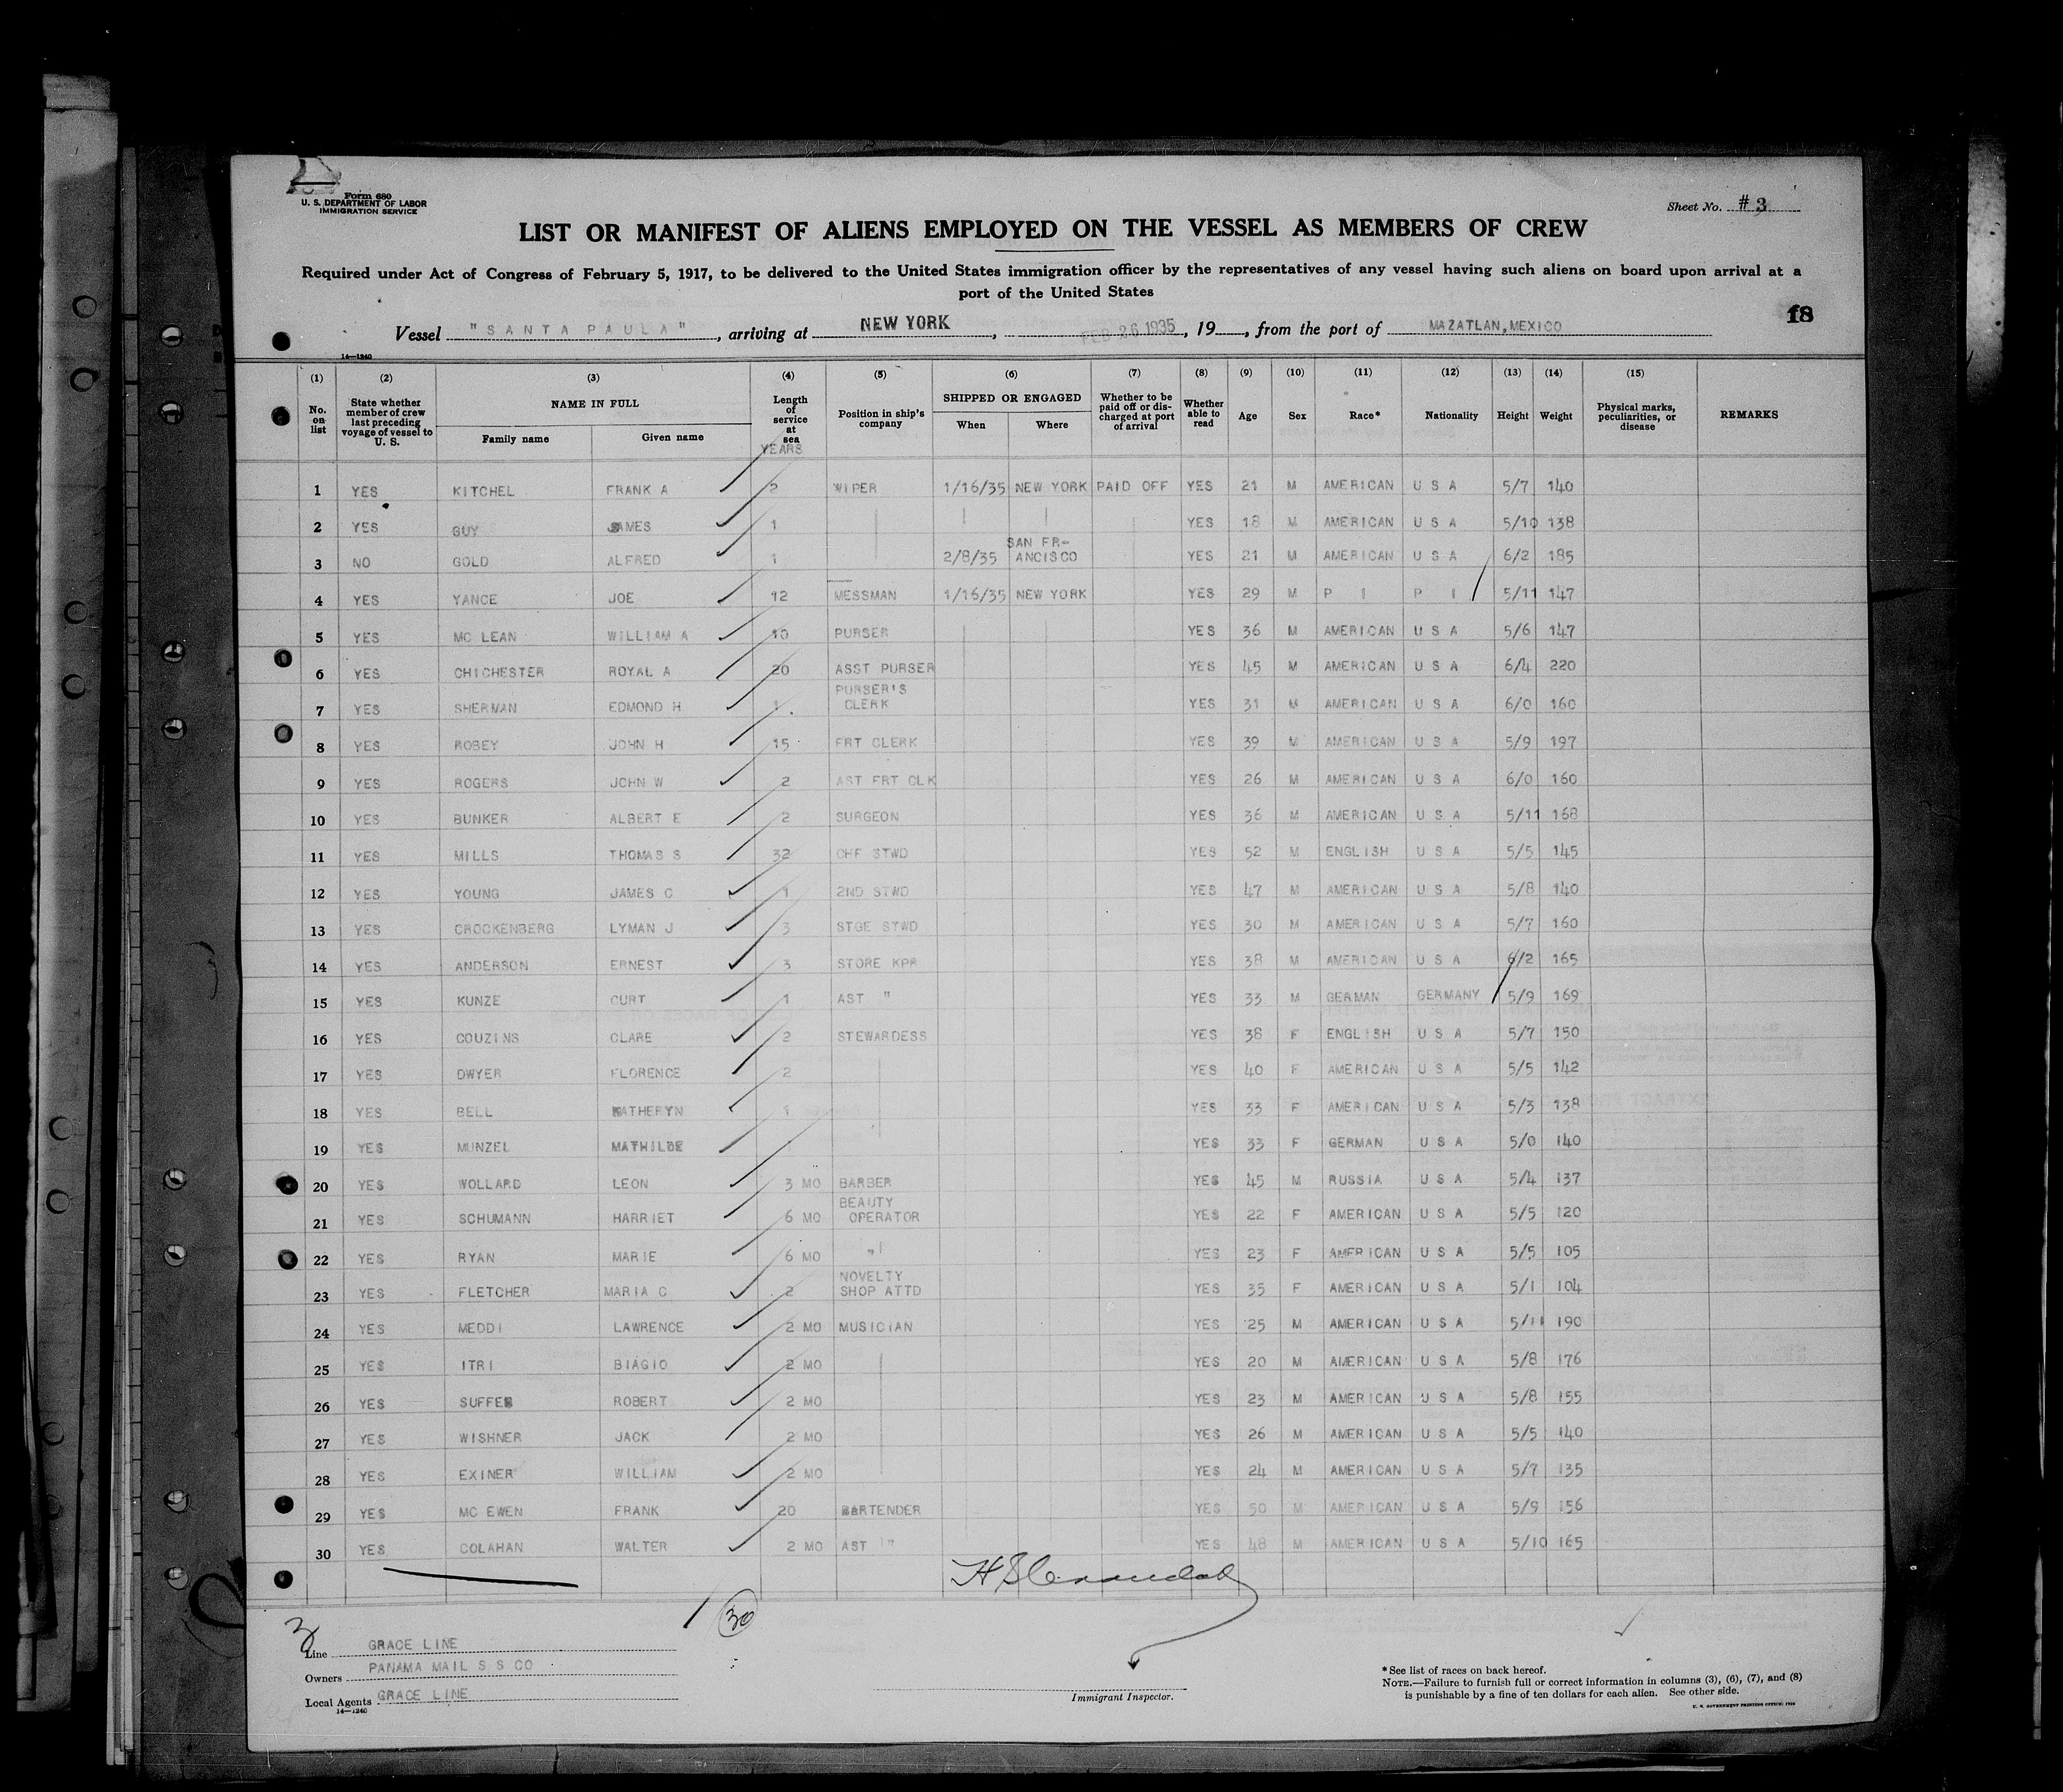 Form 680
U. S. DEPARTMENT OF LABOR
IMMIGRATION SERVICE
Sheet No. #3
LIST OR MANIFEST OF ALIENS EMPLOYED ON THE VESSEL AS MEMBERS OF CREW
Required under Act of Congress of February 5, 1917, to be delivered to the United States immigration officer by the representatives of any vessel having such aliens on board upon arrival at a
port of the United States
f8
Vessel "SANTA PAULA", arriving at NEW YORK, FEB 26 1935, 19, from the port of MAZATLAN, MEXICO
14—1240
(1) (2) (3) (4) (5) (6) (7) (8) (9) (10) (11) (12) (13) (14) (15)
No. on list State whether member of crew last preceding voyage of vessel to U. S. NAME IN FULL Family name Given name Length of service at sea YEARS Position in ship's company SHIPPED OR ENGAGED When Where Whether to be paid off or discharged at port of arrival Whether able to read Age Sex Race* Nationality Height Weight Physical marks, peculiarities, or disease REMARKS
1 YES KITCHEL FRANK A 2 WIPER 1/16/35 NEW YORK PAID OFF YES 21 M AMERICAN U S A 5/7 140
2 YES GUY JAMES 1 YES 18 M AMERICAN U S A 5/10 138
3 NO GOLD ALFRED 1 2/8/35 SAN FR-ANCISCO YES 21 M AMERICAN U S A 6/2 185
4 YES YANCE JOE 12 MESSMAN 1/16/35 NEW YORK YES 29 M P I P I 5/11 147
5 YES MC LEAN WILLIAM A 10 PURSER YES 36 M AMERICAN U S A 5/6 147
6 YES CHICHESTER ROYAL A 20 ASST PURSER YES 45 M AMERICAN U S A 6/4 220
7 YES SHERMAN EDMOND H 1 PURSER'S CLERK YES 31 M AMERICAN U S A 6/0 160
8 YES ROBEY JOHN H 15 FRT CLERK YES 39 M AMERICAN U S A 5/9 197
9 YES ROGERS JOHN W 2 AST FRT CLK YES 26 M AMERICAN U S A 6/0 160
10 YES BUNKER ALBERT E 2 SURGEON YES 36 M AMERICAN U S A 5/11 168
11 YES MILLS THOMAS S 32 CHF STWD YES 52 M ENGLISH U S A 5/5 145
12 YES YOUNG JAMES C 1 2ND STWD YES 47 M AMERICAN U S A 5/8 140
13 YES CROCKENBERG LYMAN J 3 STGE STWD YES 30 M AMERICAN U S A 5/7 160
14 YES ANDERSON ERNEST 3 STORE KPR YES 38 M AMERICAN U S A 6/2 165
15 YES KUNZE CURT 1 AST " YES 33 M GERMAN GERMANY 5/9 169
16 YES COUZINS CLARE 2 STEWARDESS YES 38 F ENGLISH U S A 5/7 150
17 YES DWYER FLORENCE 2 YES 40 F AMERICAN U S A 5/5 142
18 YES BELL KATHERYN 1 YES 33 F AMERICAN U S A 5/3 138
19 YES MUNZEL MATHILDE YES 33 F GERMAN U S A 5/0 140
20 YES WOLLARD LEON 3 MO BARBER YES 45 M RUSSIA U S A 5/4 137
21 YES SCHUMANN HARRIET 6 MO BEAUTY OPERATOR YES 22 F AMERICAN U S A 5/5 120
22 YES RYAN MARIE 6 MO " YES 23 F AMERICAN U S A 5/5 105
23 YES FLETCHER MARIA C 2 NOVELTY SHOP ATTD YES 35 F AMERICAN U S A 5/1 104
24 YES MEDDI LAWRENCE 2 MO MUSICIAN YES 25 M AMERICAN U S A 5/11 190
25 YES ITRI BIAGIO 2 MO YES 20 M AMERICAN U S A 5/8 176
26 YES SUFFES ROBERT 2 MO YES 23 M AMERICAN U S A 5/8 155
27 YES WISHNER JACK 2 MO YES 26 M AMERICAN U S A 5/5 140
28 YES EXINER WILLIAM 2 MO YES 24 M AMERICAN U S A 5/7 135
29 YES MC EWEN FRANK 20 BARTENDER YES 50 M AMERICAN U S A 5/9 156
30 YES COLAHAN WALTER 2 MO AST " YES 48 M AMERICAN U S A 5/10 165
30
3
Line GRACE LINE
Owners PANAMA MAIL S S CO
Local Agents GRACE LINE
14—1240
Immigrant Inspector.
*See list of races on back hereof.
NOTE.—Failure to furnish full or correct information in columns (3), (6), (7), and (8)
is punishable by a fine of ten dollars for each alien. See other side.